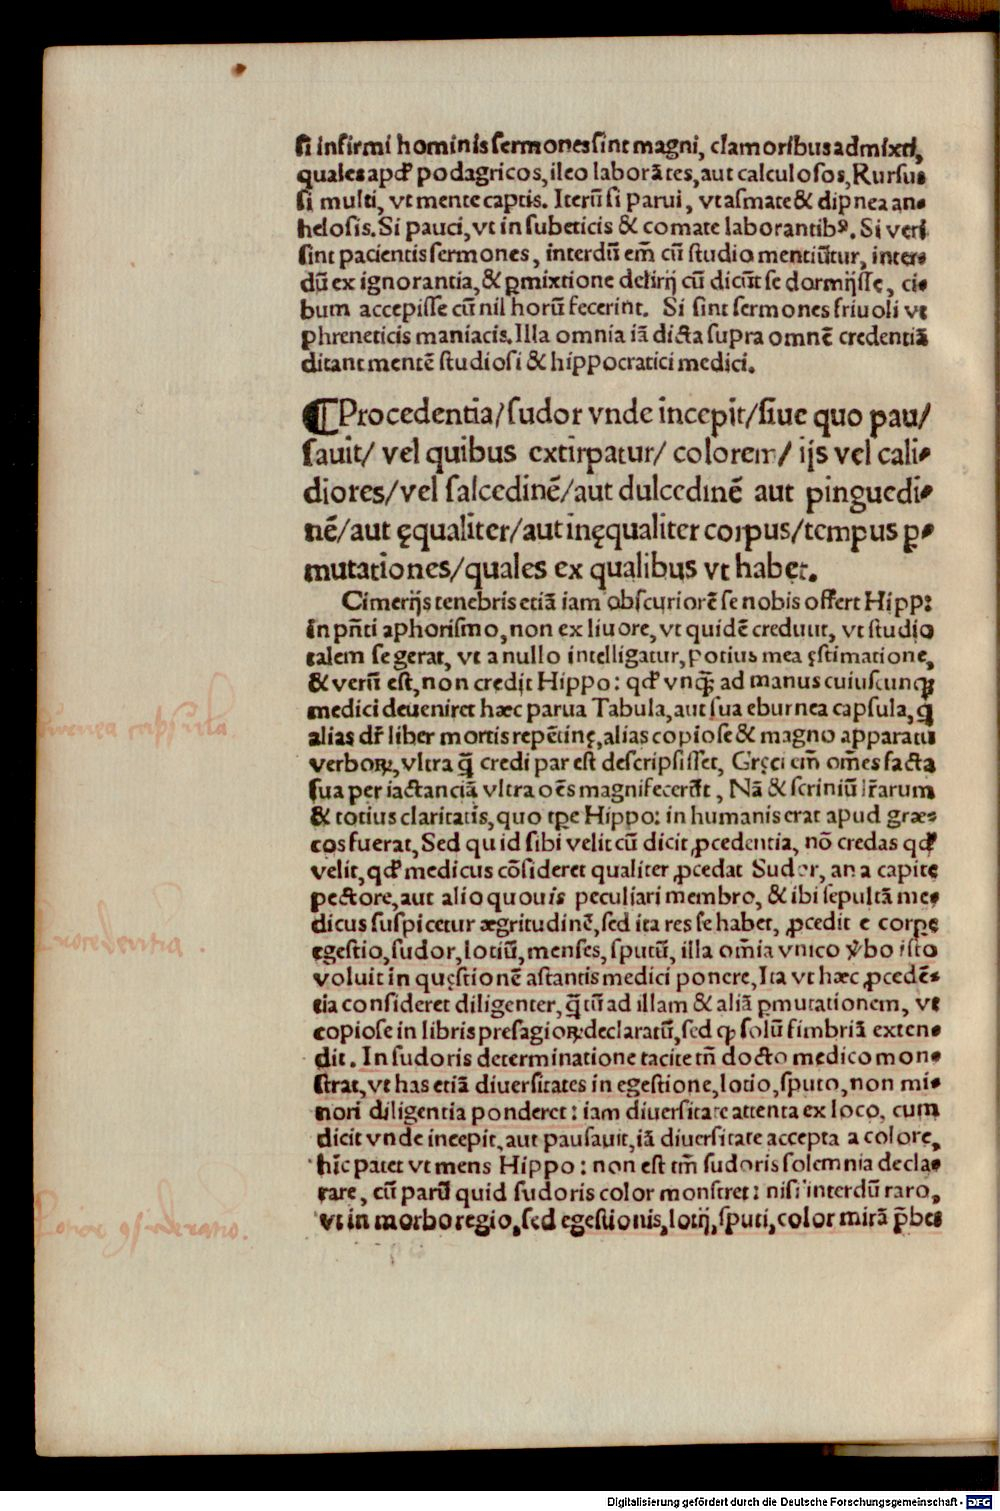 si infirmi hominis sermones sint magni, clamoribus admixti,
quales apđ podagricos, ileo laborātes, aut calculosos, Rursus
si multi, vt mente captis. Iterū si parui, vt asmate & dipnea an⸗
helosis. Si pauci, vt in subeticis & comate laborantibꝰ. Si veri
sint pacientis sermones, interdū em̄ cū studio mentiūtur, inter⸗
dū ex ignorantia, & ꝑmixtione delirij cū dicūt se dormijsse, ci⸗
bum accepisse cū nil horū fecerint. Si sint sermones friuoli vt
phreneticis maniacis. Illa omnia iā dicta supra omnē credentiā
ditant mentē studiosi & hippocratici medici.
¶Procedentia/sudor vnde incepit/siue quo pau/
sauit/ vel quibus extirpatur/ colorem/ ijs vel cali⸗
diores/vel salcedinē/aut dulcedinē aut pinguedi⸗
nē/aut ęqualiter/aut inęqualiter corpus/tempus ꝑ⸗
mutationes/quales ex qualibus vt habet.
Cimerijs tenebris etiā iam obscuriorē se nobis offert Hipp:
in pn̄ti aphorismo, non ex liuore, vt quidē credunt, vt studio
talem se gerat, vt a nullo intelligatur, potius mea ęstimatione,
& verū est, non credit Hippo: qđ vnq̄ꝫ ad manus cuiuscunqꝫ
medici deueniret hæc parua Tabula, aut sua eburnea capsula, q̄
alias dr̄ liber mortis repētinę, alias copiose & magno apparatu
verboꝝ, vltra q̄ credi par est descripsisset, Gręci em̄ om̄es facta
sua per iactanciā vltra oēs magnifecerūt, Nā & scriniū lr̄arum
& totius claritatis, quo tp̄e Hippo: in humanis erat apud græ⸗
cos fuerat, Sed quid sibi velit cū dicit ꝓcedentia, nō credas qđ
velit, qđ medicus cōsideret qualiter ꝓcedat Sudor, an a capite
pectore, aut alio quouis peculiari membro, & ibi sepultā me⸗
dicus suspicetur ægritudinē, sed ita res se habet, ꝓcedit e corpe
egestio, sudor, lotiū, menses, sputū, illa om̄ia vnico v̄bo isto
voluit in quęstionē astantis medici ponere, Ita vt hæc ꝓcedē⸗
tia consideret diligenter, q̄tū ad illam & aliā ꝑmutationem, vt
copiose in libris presagioꝝ declaratū, sed ꝙ solū fimbriā exten⸗
dit. In sudoris determinatione tacite tn̄ docto medico mon⸗
strat, vt has etiā diuersitates in egestione, lotio, sputo, non mi⸗
nori diligentia ponderet: iam diuersitate attenta ex loco, cum
dicit vnde incepit, aut pausauit, iā diuersitate accepta a colore,
hīc patet vt mens Hippo: non est tm̄ sudoris solemnia decla⸗
rare, cū parū quid sudoris color monstret: nisi interdū raro,
vt in morbo regio, sed egestionis, lotij, sputi, color mirā p̄bet
Eburnea capsula.
Procedentia.
Digitalisierung gefördert durch die Deutsche Forschungsgemeinschaft - DFG